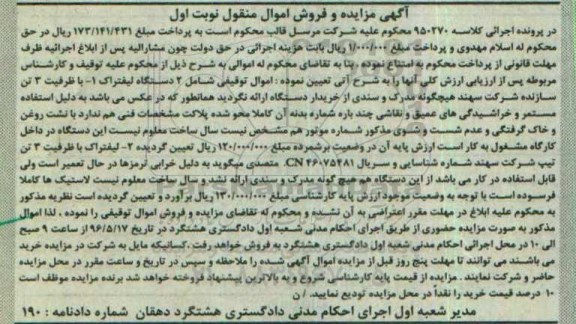 آگهی مزایده و فروش اموال منقول نوبت اول
در پرونده اجرائی کلاسه ۹۵۰۲۷۰ محکوم علیه شرکت مرسل قالب محکوم است به پرداخت مبلغ ۱۷۳/۱۴۱/۴۳۱ ریال در حق
محکوم له اسلام مهدوی و پرداخت مبلغ ۱/۰۰۰/۰۰۰ ریال بابت هزینه اجرائی در حق دولت چون مشارالیه پس از ابلاغ اجرائیه ظرف
مهلت قانونی از پرداخت محکوم به امتناع نموده بنا به تقاضای محکوم له اموالی به شرح ذیل از محکوم علیه توقیف و کارشناس
مربوطه پس از ارزیابی ارزش کلی آنها را به شرح آتی تعیین نموده : اموال توقیفی شامل ۲ دستگاه لیفتراک ۱- با ظرفیت ۳ تن
سازنده شرکت سهند هیچگونه مدرک و سندی از خریدار دستگاه ارائه نگردید همانطور که در عکس می باشد به دلیل استفاده
مستمر و خراشیدگی های عمیق و نقاشی چند باره شماره بدنه آن کاملا محو شده پلاکت مشخصات فنی هم ندارد با نشت روغن
و خاک گرفتگی و عدم شست و شوی مذکور شماره موتور هم مشخص نیست سال ساخت معلوم نیست این دستگاه در داخل
کارگاه مشغول به کار است ارزش پایه آن در وضعیت برشمرده مبلغ ۱۲۰/۰۰۰/۰۰۰ ریال تعیین گردیده ۲- لیفتراک با ظرفیت ۳ تن
تیپ شرکت سهند شماره شناسایی و سریال CN ۴۶۰۷۵۴۸۱. متصدی میگوید به دلیل خرابی ترمزها در حال تعمیر است ولی
قابل استفاده در کار می باشد از این دستگاه هم هیچ گونه مدرک و سندی ارائه نشد و سال ساخت معلوم نیست لاستیک ها کاملا
فرسوده است با توجه به وضعیت موجود ارزش پایه کارشناسی مبلغ ۱۳۰/۰۰۰/۰۰۰ ریال برآورد و تعیین گردیده است نظریه مذکور
به محکوم علیه ابلاغ در مهلت مقرر اعتراضی به آن نشده و محکوم له تقاضای مزایده و فروش اموال توقیفی را نموده ، لذا اموال
مذکور به صورت مزایده حضوری از طریق اجرای احکام مدنی شعبه اول دادگستری هشتگرد در تاریخ ۹۶/۵/۱۷ از ساعت ۹ صبح
الی ۱۰ در محل اجرائی احکام مدنی شعبه اول دادگستری هشتگرد به فروش خواهد رفت ،کسانیکه مایل به شرکت در مزایده خرید
می باشند می توانند تا مهلت پنج روز قبل از مزایده اموال آگهی شده را ملاحظه و سپس در تاریخ و ساعت مقرر در محل مزایده
حاضر و شرکت نمایند . مزایده از قیمت پایه کارشناسی شروع و به بالاترین پیشنهاد فروخته خواهد شد برنده مزایده موظف است
۱۰ درصد قیمت خرید را نقداً در محل مزایده تودیع نمایید. / ن
مدیر شعبه اول اجرای احکام مدنی دادگستری هشتگرد دهقان شماره دادنامه : ۱۹۰